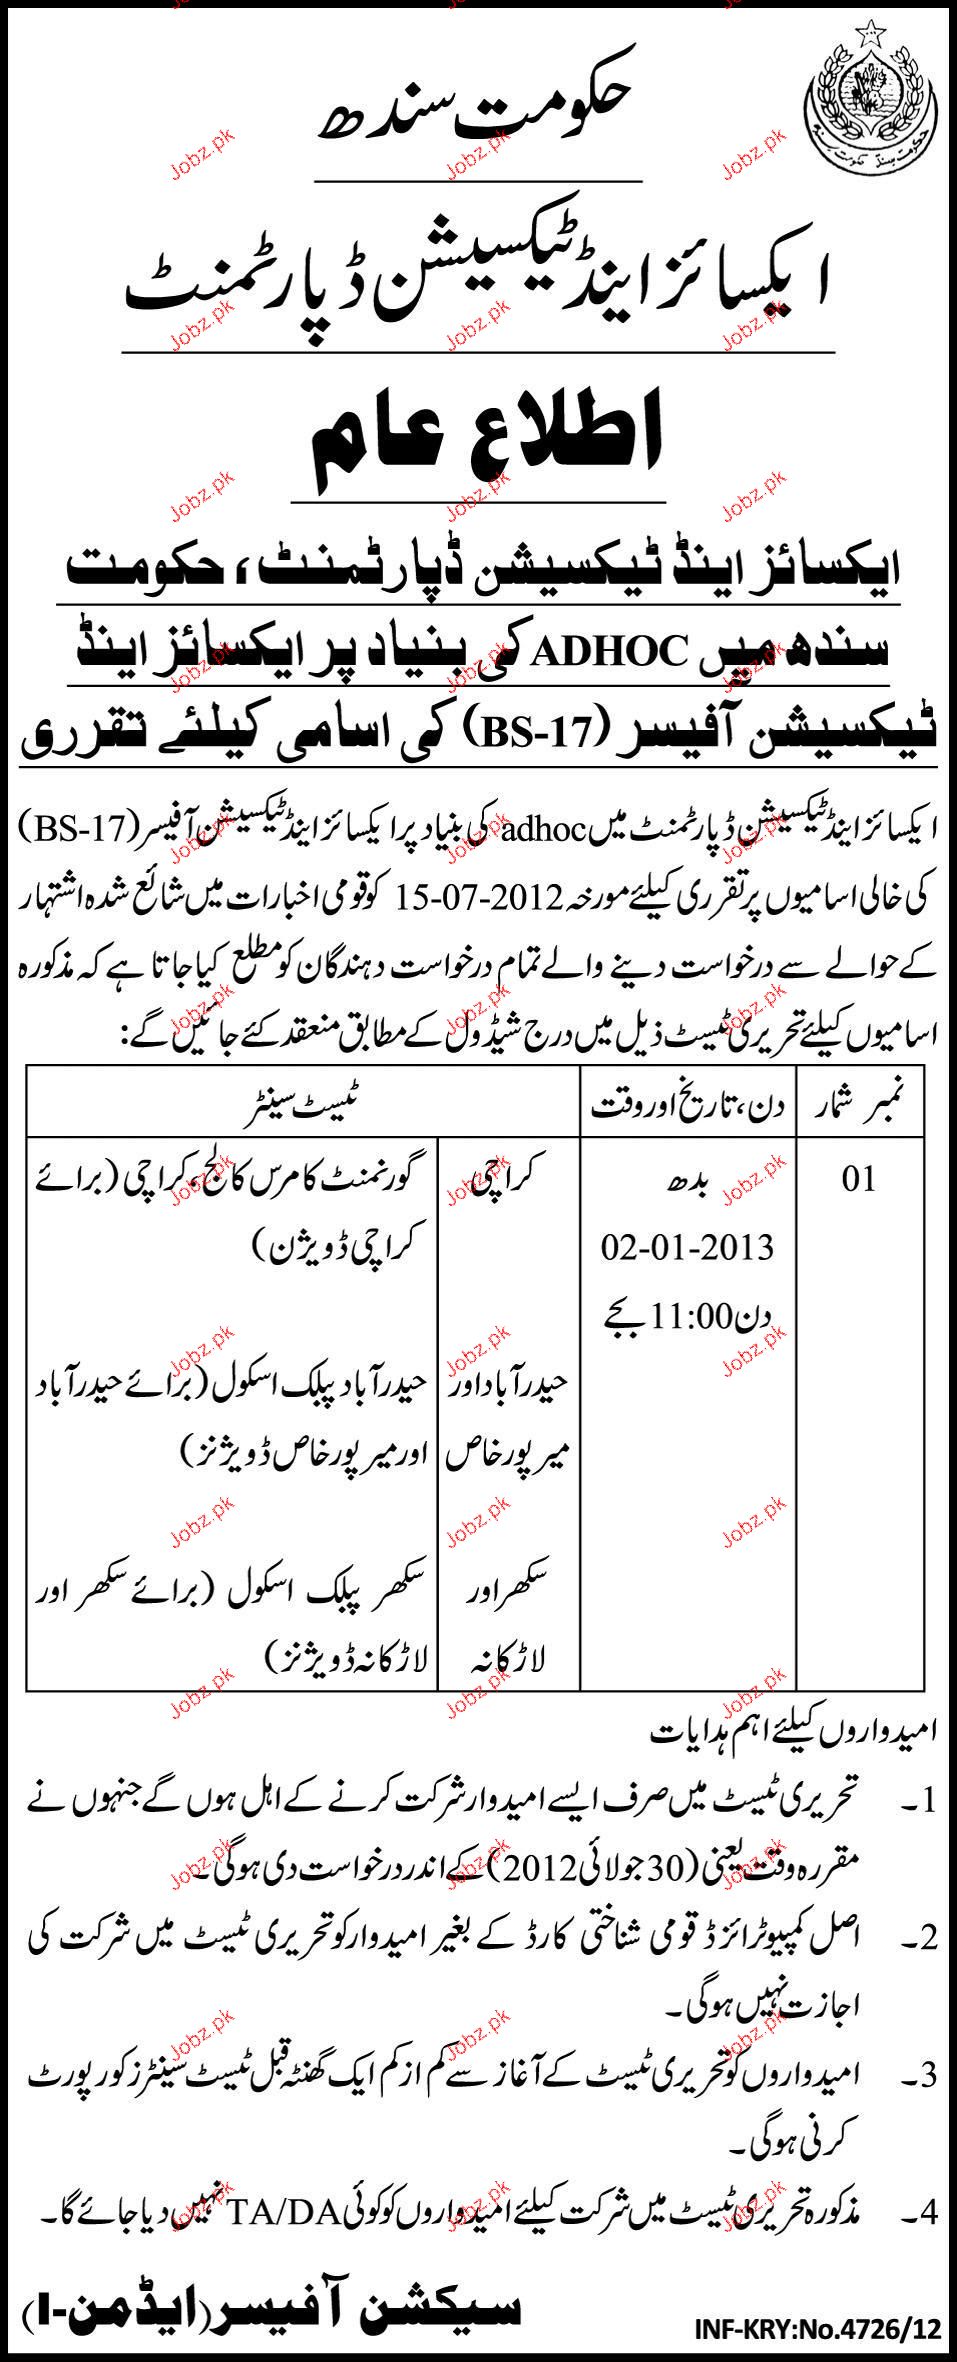 حکومت سندھ
ایکسائز اینڈ ٹیکسیشن ڈپارٹمنٹ
اطلاع عام
ایکسائز اینڈ ٹیکسیشن ڈپارٹمنٹ، حکومت
سندھ میں ADHOC کی بنیاد پر ایکسائز اینڈ
ٹیکسیشن آفیسر (BS-17) کی اسامی کیلئے تقرری
ایکسائز اینڈ ٹیکسیشن ڈپارٹمنٹ میں adhoc کی بنیاد پر ایکسائز اینڈ ٹیکسیشن آفیسر (BS-17)
کی خالی اسامیوں پر تقرری کیلئے مورخہ 15-07-2012 کو قومی اخبارات میں شائع شدہ اشتہار
کے حوالے سے درخواست دینے والے تمام درخواست دہندگان کو مطلع کیا جاتا ہے کہ مذکورہ
اسامیوں کیلئے تحریری ٹیسٹ ذیل میں درج شیڈول کے مطابق منعقد کئے جائیں گے:
نمبر شمار دن، تاریخ اور وقت ٹیسٹ سینٹر
01 بدھ کراچی گورنمنٹ کامرس کالج، کراچی (برائے
02-01-2013 کراچی ڈویژن)
دن 11:00 بجے
حیدرآباد اور حیدرآباد پبلک اسکول (برائے حیدرآباد
میرپورخاص اور میرپورخاص ڈویژنز)
سکھر اور سکھر پبلک اسکول (برائے سکھر اور
لاڑکانہ لاڑکانہ ڈویژنز)
امیدواروں کیلئے اہم ہدایات
1۔ تحریری ٹیسٹ میں صرف ایسے امیدوار شرکت کرنے کے اہل ہوں گے جنہوں نے
مقررہ وقت یعنی (30 جولائی 2012) کے اندر درخواست دی ہوگی۔
2۔ اصل کمپیوٹرائزڈ قومی شناختی کارڈ کے بغیر امیدوار کو تحریری ٹیسٹ میں شرکت کی
اجازت نہیں ہوگی۔
3۔ امیدواروں کو تحریری ٹیسٹ کے آغاز سے کم از کم ایک گھنٹہ قبل ٹیسٹ سینٹرز کو رپورٹ
کرنی ہوگی۔
4۔ مذکورہ تحریری ٹیسٹ میں شرکت کیلئے امیدواروں کو کوئی TA/DA نہیں دیا جائے گا۔
سیکشن آفیسر (ایڈمن-I)
INF-KRY:No.4726/12
Jobz.pk